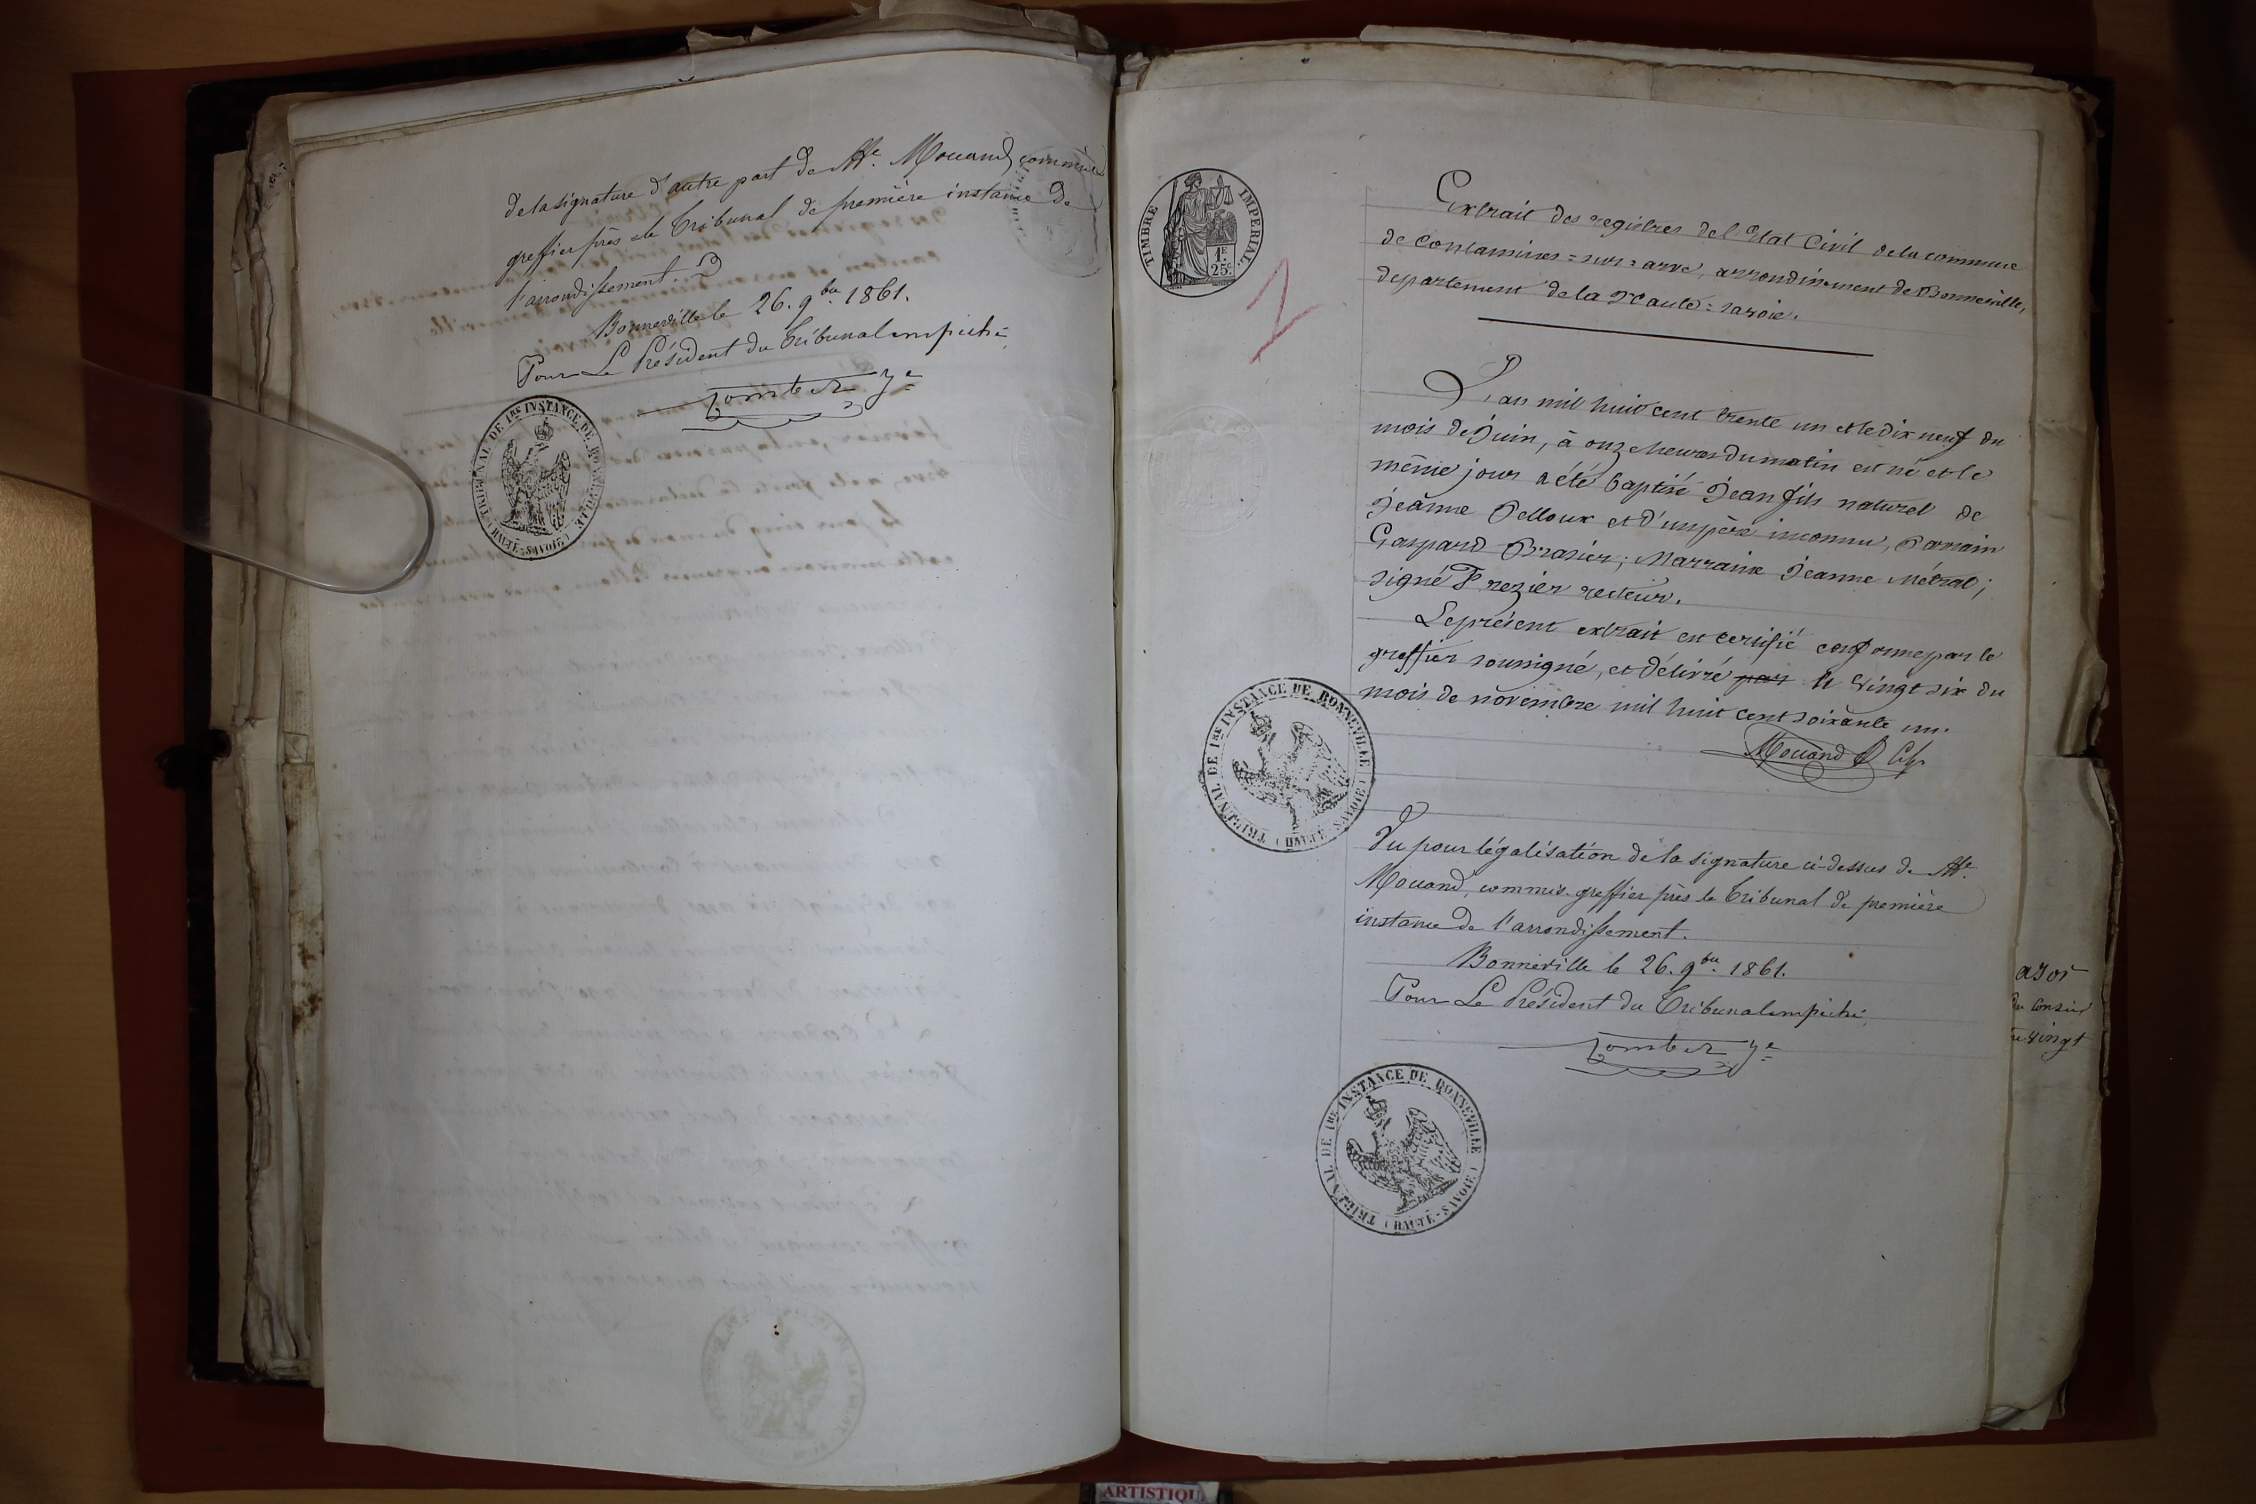 de la signature d'autre part de Me. Mouand, commis
greffier près le Tribunal de première instance de
l'arrondissement.
Bonneville le 26. 9bre. 1861.
Pour Le Président du Tribunal empêché
TRIBUNAL DE 1RE INSTANCE DE BONNEVILLE
(HAUTE-SAVOIE)
TIMBRE IMPERIAL
1F.
25c.
Extrait des registres de l'Etat Civil de la commune
de Contamines=sur=arve, arrondissement de Bonneville,
département de la Haute=savoie.
L'an mil huit cent trente un et le dix neuf du
mois de Juin, à onze heures du matin est né et le
même jour a été baptisé Jean fils naturel de
Jeanne Pelloux et d'un père inconnu, Parrain
Gaspard Brasier; Marraine Jeanne Métral;
signé Frezier recteur.
Le présent extrait est certifié conforme par le
greffier soussigné, et délivré par le vingt six du
mois de novembre mil huit cent soixante un.
Mouand
TRIBUNAL DE 1RE INSTANCE DE BONNEVILLE
(HAUTE-SAVOIE)
Vu pour légalisation de la signature ci-dessus de Me.
Mouand, commis-greffier près le Tribunal de première
instance de l'arrondissement.
Bonneville le 26. 9bre. 1861.
Pour Le Président du Tribunal empêché
TRIBUNAL DE 1RE INSTANCE DE BONNEVILLE
(HAUTE-SAVOIE)
vingt
ARTISTIQU